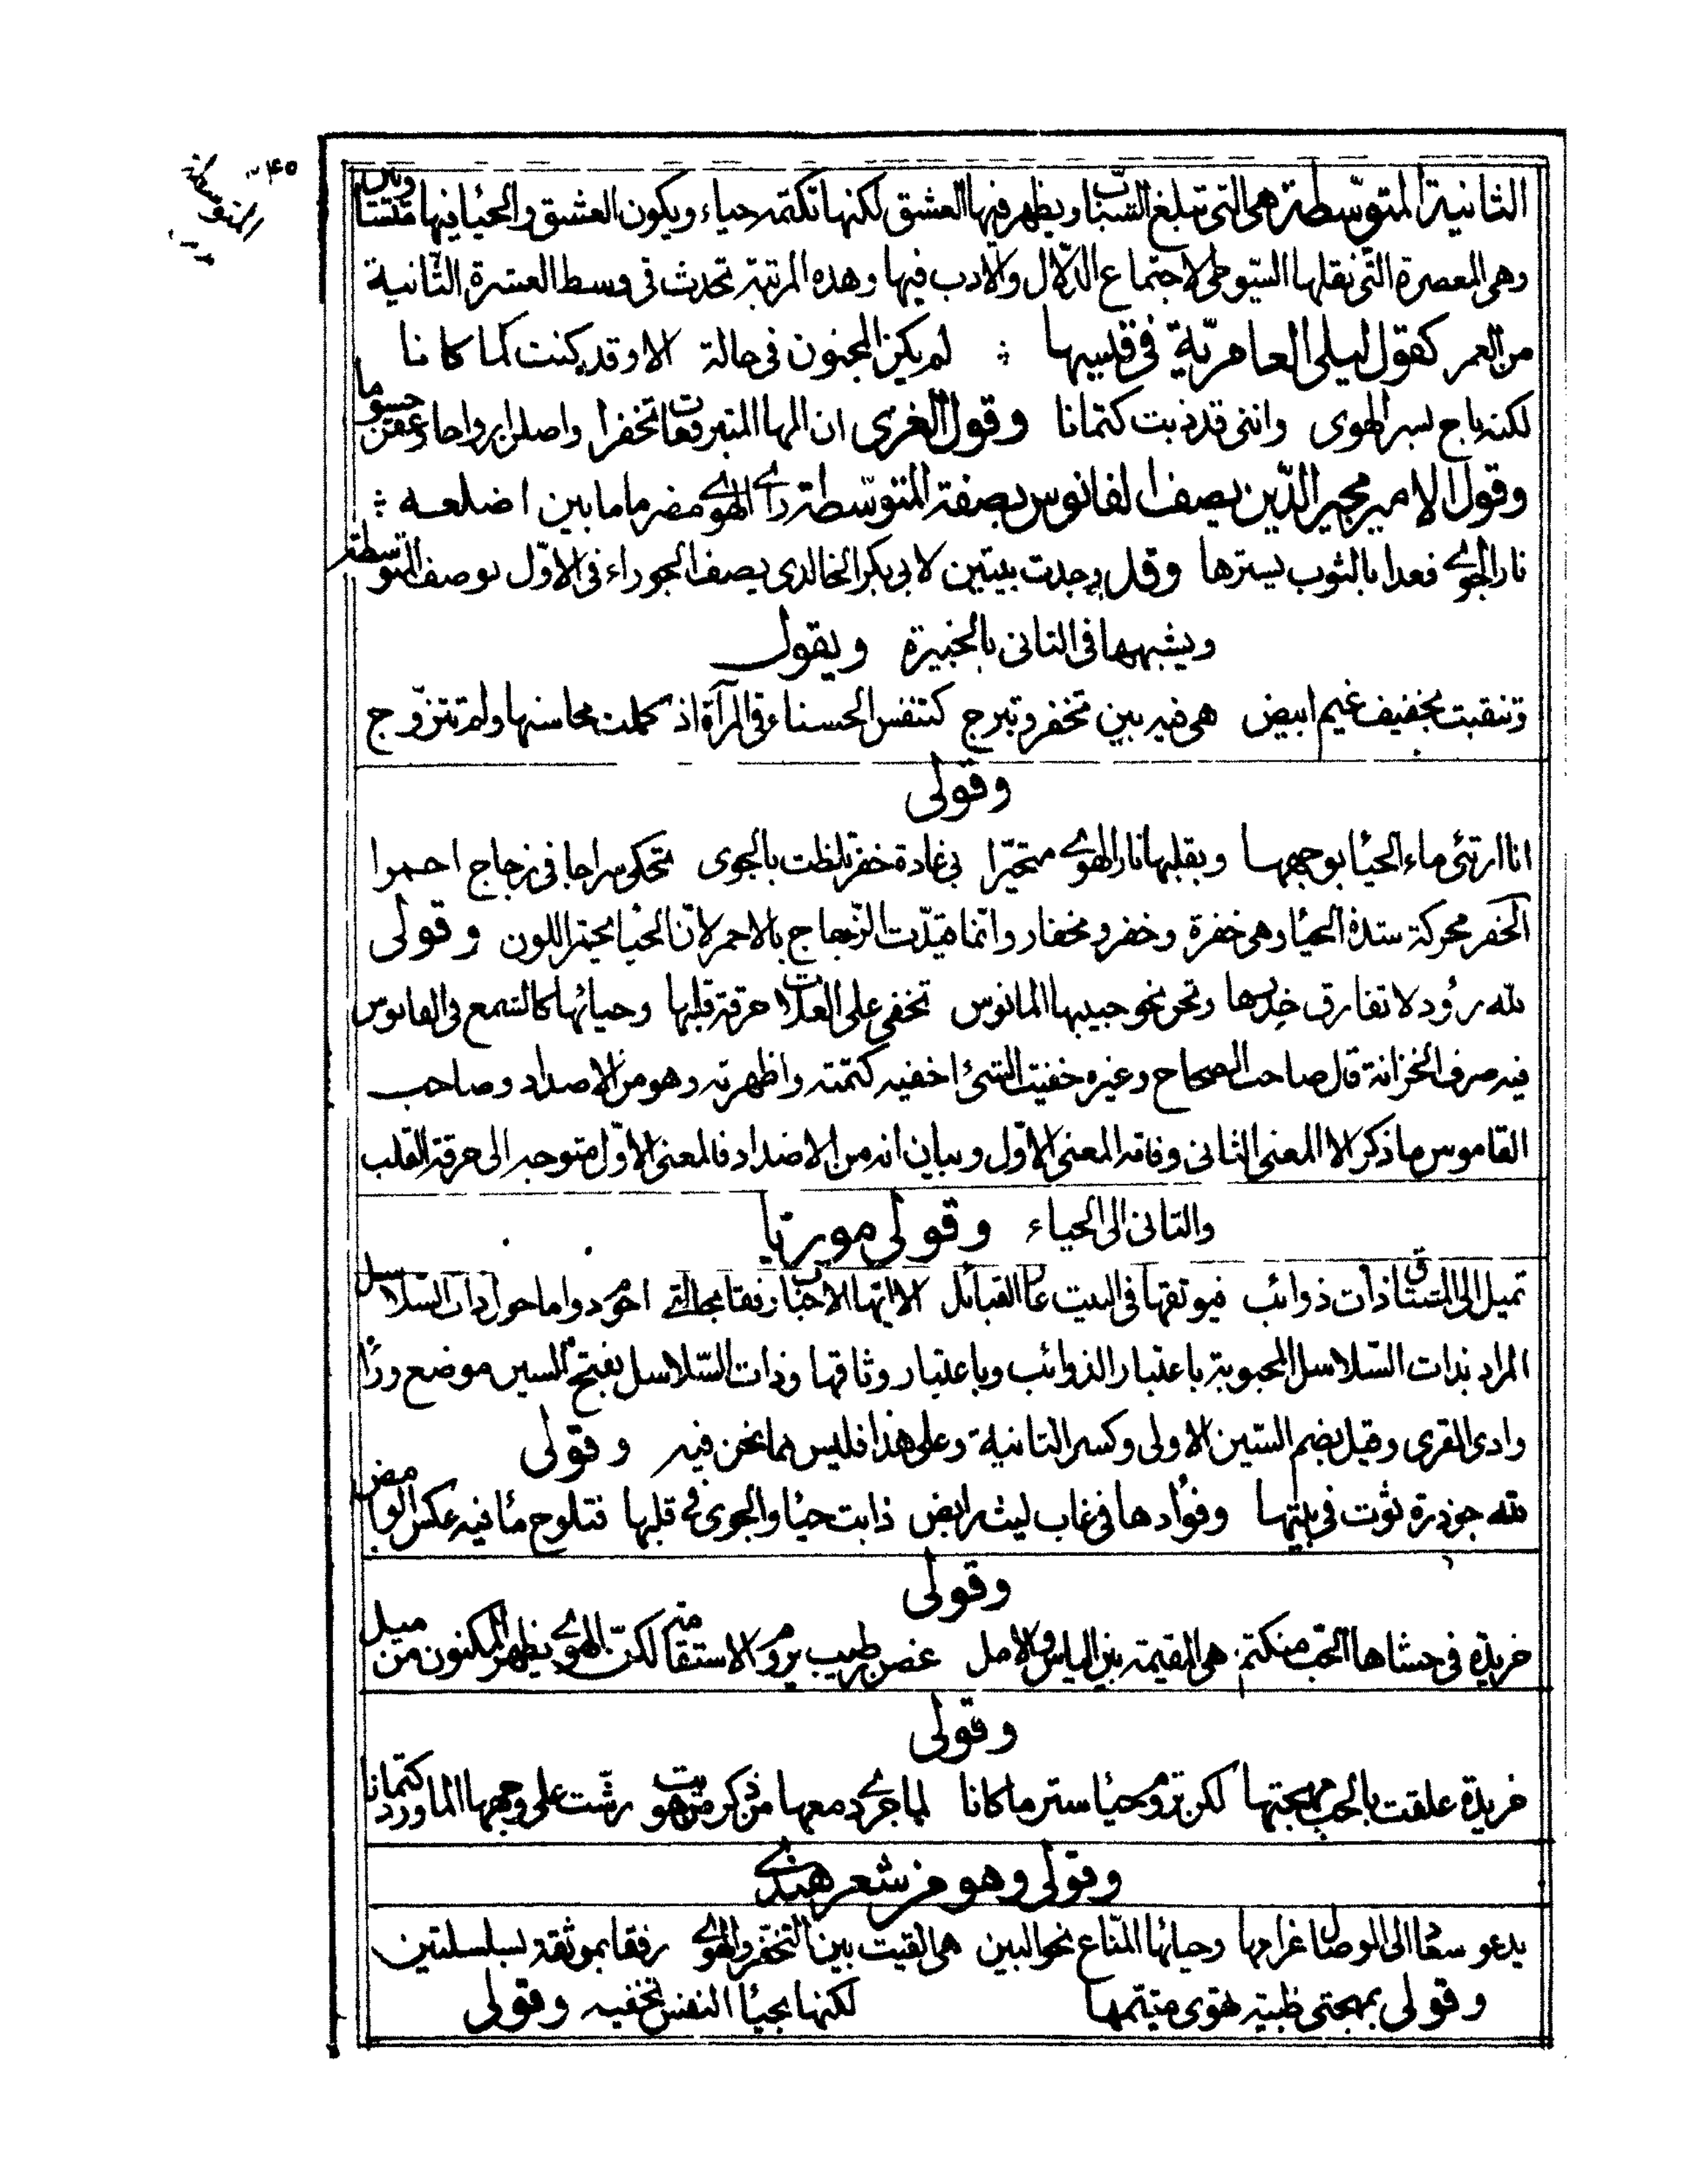 ٤٥
الثانية المتوسّطة هى التى تبلغ الشباب ويظهر فيها العشق لكنها تكتمه حياء ويكون العشق والحياء فيها متساويين
وهى المعصرة التى نقلها السّيوطى لاجتماع الدّلال والادب فيها وهذه المرتبة تحدث فى وسط العشرة الثّانية
من العمر كقول ليلى العامريّة فى قيسها لم يكن المجنون فى حالة الا وقد كنت كما كانا
لكنه باح بسر الهوى وانى قد ذبت كتمانا وقول الغزى ان المها المتبرقعات تخفرا واصلن ارواحا وعفن جسوما
وقول الامير مجير الدّين يصف الفانوس بصفة المتوسّطة راى الهوى مضرما ما بين اضلعه
نار الجوى فعدا بالثوب يسترها وقد وجدت بيتين لابى بكر الخالدى يصف الجوزاء فى الاوّل بوصف المتوسطة
ويشبهها فى الثانى بالخبيرة ويقول
وتنقبت بخفيف غيم ابيض هى فيه بين تخفر وتبرج كتنفس الحسناء فى المرآة اذ كملت محاسنها ولم تتزوج
وقولى
انا ارتئى ماء الحيا بوجهها وبقلبها نار الهوى متحيّرا بى غادة خفر تلظت بالجوى تحكى سراجا فى زجاج احمرا
الخفر محركة شدة الحيا وهى خفرة وخفر ومخفار وانّما قيّدت الزّجاج بالاحمر لانّ الحيا يحمر اللون وقولى
لله رؤد لا تفارق خدرها وتحن نحو حبيبها المانوس تخفى على العلات حرقة قلبها وحيائها كالشمع فى الفانوس
فيه صرف الخزانة قال صاحب الصحاح وغيره خفيت الشئ اخفيه كتمته واظهرته وهو من الاضداد وصاحب
القاموس ما ذكر الا المعنى الثانى وفاته المعنى الاوّل وبيان انه من الاضداد فالمعنى الاوّل متوجه الى حرقة القلب
والثانى الى الحياء وقولى موريا
تميل الى المشتاق ذات ذوائب فيوثقها فى البيت عار القبائل الا ايها الاحباب رفقا بحالتى احموا دوا ما حول ذات السلاسل
المراد بذات السّلاسل المحبوبة باعتبار الذوائب وباعتبار وثاقها وذات السّلاسل بفتح السين موضع وراء
وادى القرى وقيل بضم السّين الاولى وكسر الثانية وعلى هذا فليس مما نحن فيه وقولى
لله جوذرة ثوت فى بيتها وفؤادها فى غاب ليث رابض ذابت حيا والجوى فى قلبها فتلوح ماء فيه عكس الوامض
وقولى
خريدة فى حشاها الحب منكتم هى المقيمة بين الياس والامل غصن رطيب يروم الاستقامة لكنّ الهوى يظهر المكنون من ميل
وقولى
خريدة علقت بالحب مهجتها لكن تروم حيا ستر ما كانا لما جرى دمعها من ذكر من هويت رشّت على وجهها الماورد كتمانا
وقولى وهو من شعر هندى
يدعو سعاد الى الوصال غرامها وحيائها المنّاع نحو البين هى القيت بين التخفّر والهوى رفقا بموثقة بسلسلتين
وقولى بمهجتى ظبية تهوى متيّمها لكنها بحيا النفس تخفيه وقولى